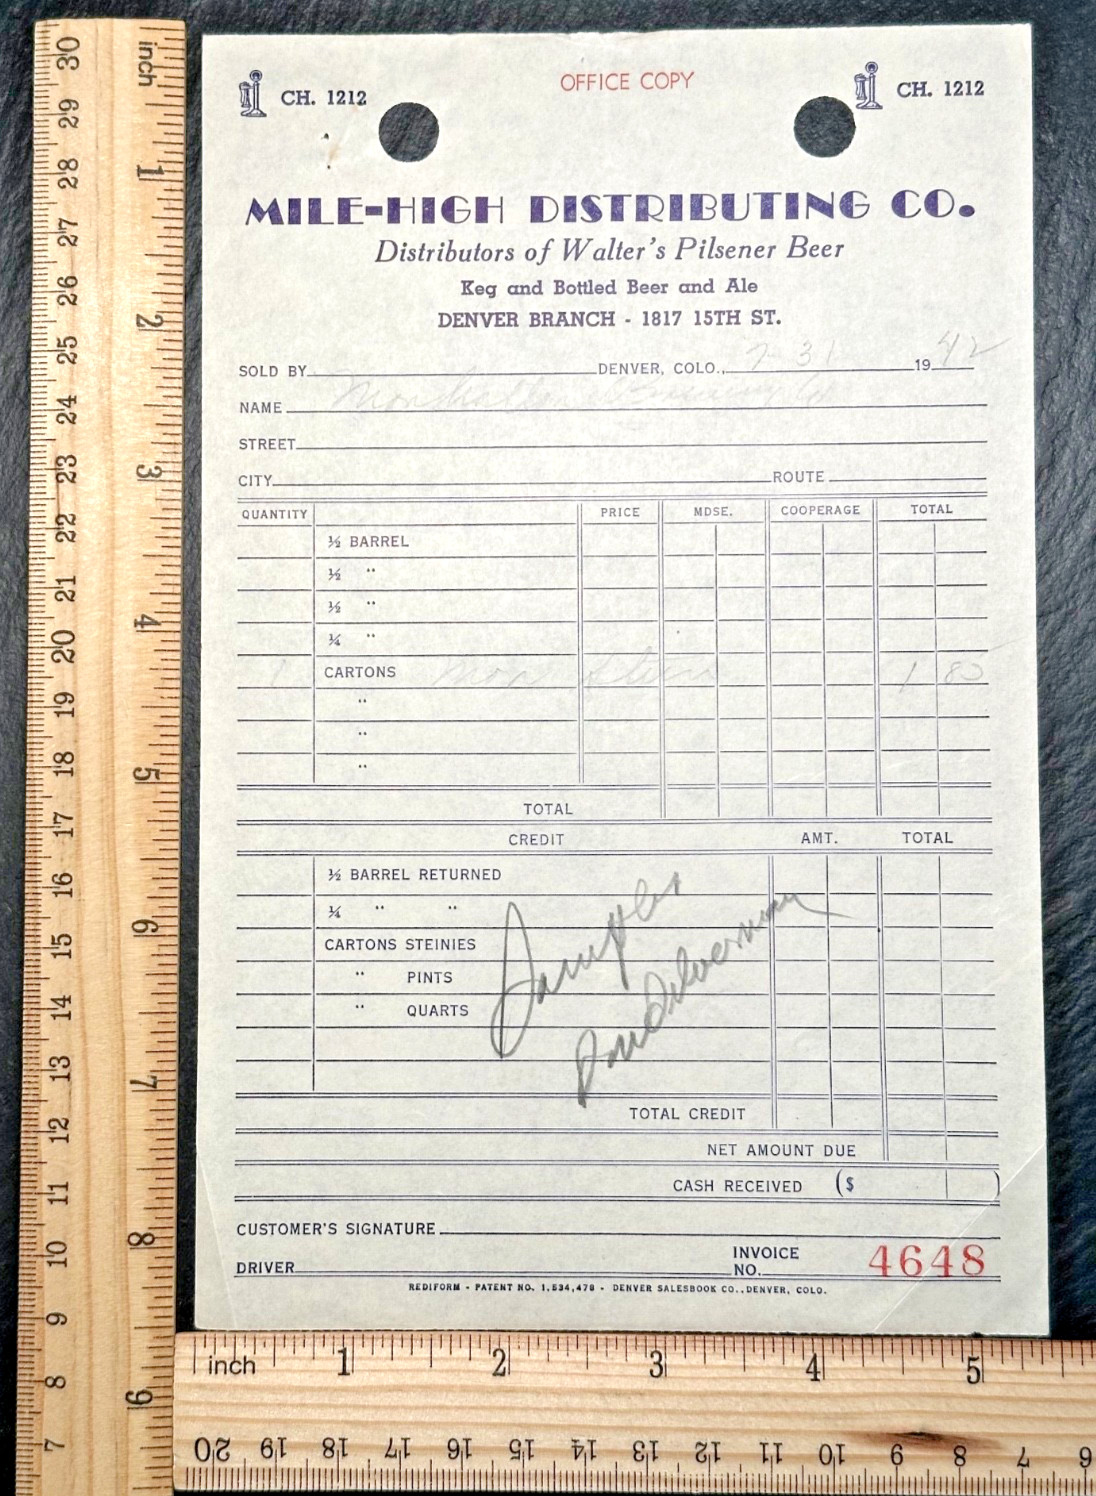 OFFICE COPY
CH. 1212 CH. 1212
MILE-HIGH DISTRIBUTING CO.
Distributors of Walter's Pilsener Beer
Keg and Bottled Beer and Ale
DENVER BRANCH - 1817 15TH ST.
SOLD BY DENVER, COLO., 7 31 1942
NAME
STREET
CITY ROUTE
QUANTITY PRICE MDSE. COOPERAGE TOTAL
½ BARREL
½ "
½ "
¼ "
1 CARTONS 1 85
"
"
"
TOTAL
CREDIT AMT. TOTAL
½ BARREL RETURNED
¼ " "
CARTONS STEINIES
" PINTS
" QUARTS
Samples
TOTAL CREDIT
NET AMOUNT DUE
CASH RECEIVED ($ )
CUSTOMER'S SIGNATURE
DRIVER INVOICE NO. 4648
REDIFORM - PATENT NO. 1,534,478 - DENVER SALESBOOK CO., DENVER, COLO.
inch 1 2 3 4 5 6 7 8 9
30 29 28 27 26 25 24 23 22 21 20 19 18 17 16 15 14 13 12 11 10 9 8 7
inch 1 2 3 4 5
20 19 18 17 16 15 14 13 12 11 10 9 8 7 6